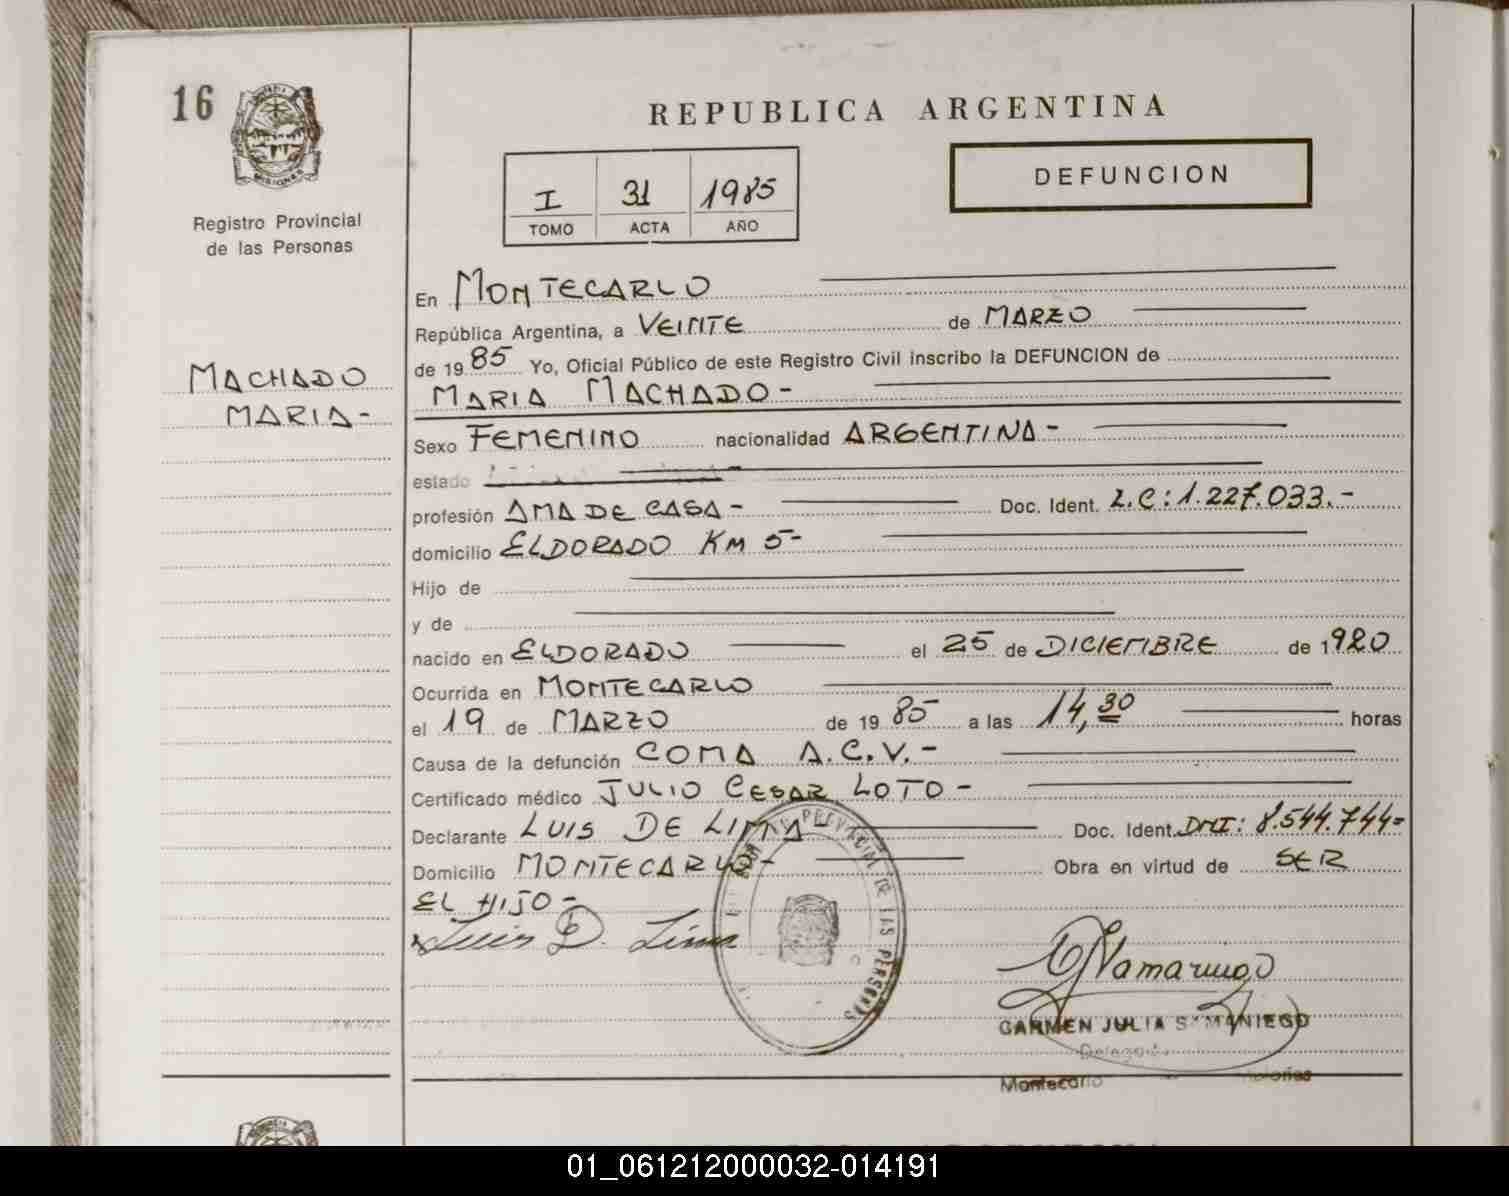 16
REPUBLICA ARGENTINA
DEFUNCION
I 31 1985
TOMO ACTA AÑO
Registro Provincial
de las Personas
MISIONES
MACHADO
MARIA-
En MONTECARLO
República Argentina, a VEINTE de MARZO
de 1985 Yo, Oficial Público de este Registro Civil inscribo la DEFUNCION de
MARIA MACHADO-
Sexo FEMENINO nacionalidad ARGENTINA-
estado
profesión AMA DE CASA- Doc. Ident. L.C: 1.227.033.-
domicilio ELDORADO KM 5-
Hijo de
y de
nacido en ELDORADO el 25 de DICIEMBRE de 1920
Ocurrida en MONTECARLO
el 19 de MARZO de 1985 a las 14,30 horas
Causa de la defunción COMA A.C.V.-
Certificado médico JULIO CESAR LOTO-
Declarante LUIS DE LIMA- Doc. Ident. DNI: 8.544.744-
Domicilio MONTECARLO- Obra en virtud de SER
EL HIJO-
Luis D. Lima
DE LAS PERSONAS
CARMEN JULIA SAMANIEGO
Montecarlo
01_061212000032-014191